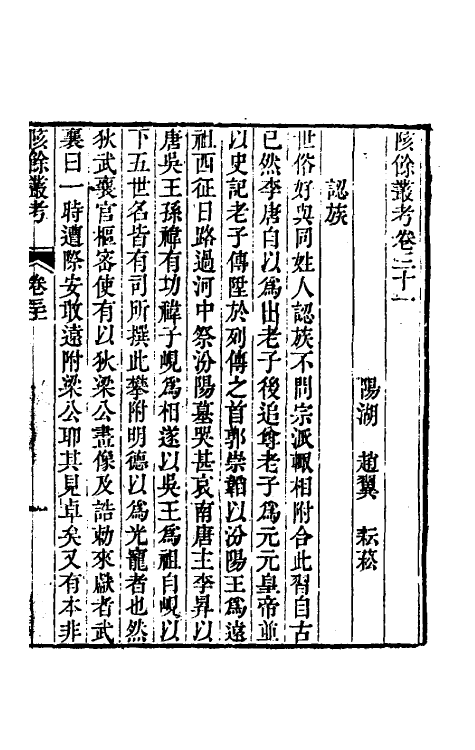 陔餘叢考卷三十一
陽湖 趙翼 耘菘
認族
世俗好與同姓人認族不問宗派輒相附合此習自古
已然李唐自以為出老子後追尊老子為元元皇帝並
以史記老子傳陞於列傳之首郭崇韜以汾陽王為遠
祖西征日路過河中祭汾陽墓哭甚哀南唐主李昇以
唐吳王孫禕有功禕子峴為相遂以吳王為祖自峴以
下五世名皆有司所撰此攀附明德以為光寵者也然
狄武襄官樞密使有以狄梁公畫像及誥勅來獻者武
襄曰一時遭際安敢遠附梁公耶其見卓矣又有本非
陔餘叢考
卷三十一
一